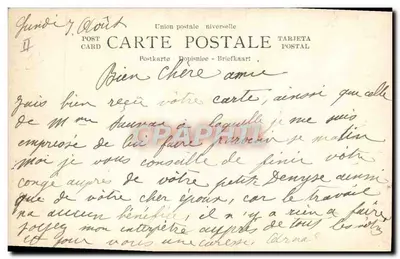 Lundi 7 Août
Union postale universelle
POST CARD CARTE POSTALE TARJETA POSTAL
Postkarte Dopisnice - Briefkaart
Bien chère amie
J'ais bien reçu vôtre carte, ainsi que celle
de Mme à laquelle je me suis
empressé de lui faire ce matin
Moi je vous conseille de finir vôtre
congé auprès de vôtre petite Denyse ainsi
que de vôtre cher époux, car le travail
n'a aucun bénéfice, il n'y a rien à faire
soyez mon interprète auprès de tous les
et pour vous une caresse